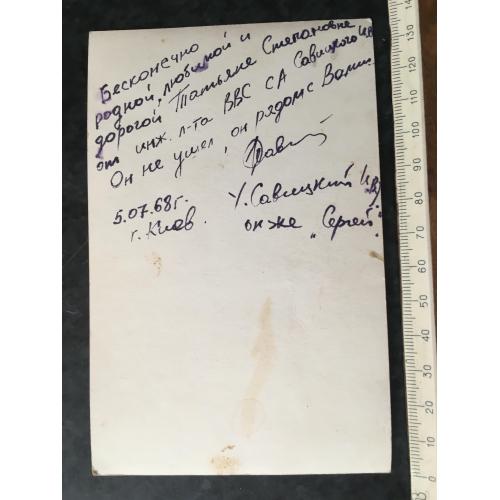 Бесконечно
родной, любимой и
дорогой Татьяне Степановне
от инж. л-та ВВС СА Савицкого
Он не ушел, он рядом с Вами.
5.07.68г. У. Савицкий
г. Киев. он же "Сергей".
140
130
120
110
100
90
80
70
60
50
40
30
20
10
0